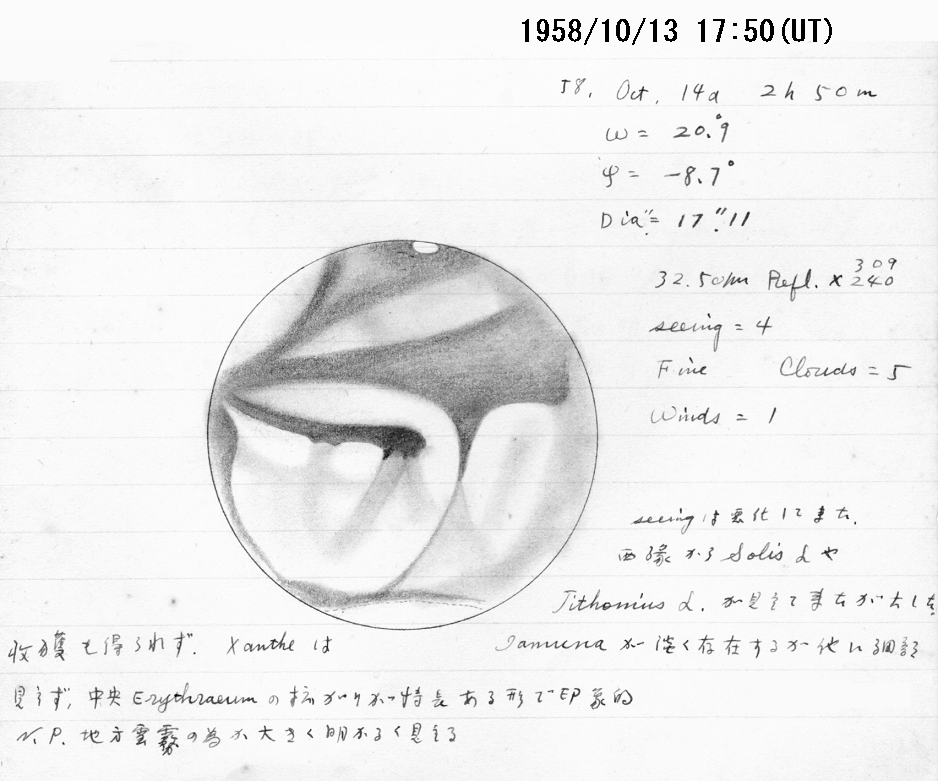 1958/10/13 17:50(UT)
58. Oct. 14d 2h 50m
ω = 20.°9
φ = -8.7°
Dia = 17".11
32.5cm Refl. × 309 240
seeing = 4
Fine Clouds = 5
Winds = 1
seeingは悪化して来た.
西縁からSolis Lや
Tithonius L. が見えて来たが大した
収獲も得られず. Xantheは Jamunaが淡く存在するが他に細部
見えず, 中央Erythraeumの拡がりが特長ある形で印象的
N.P. 地方雲霧の為か大きく明かるく見える